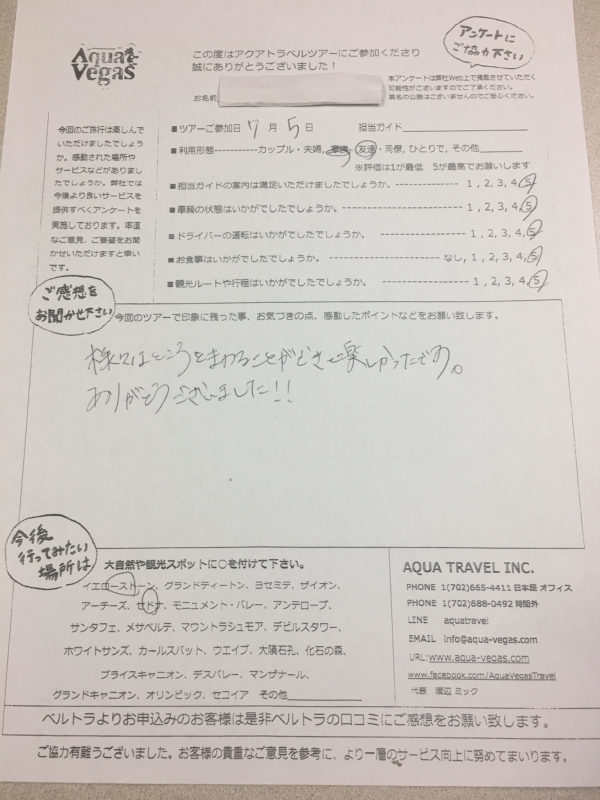 Aqua
Vegas
この度はアクアトラベルツアーにご参加くださり
誠にありがとうございました！
アンケートに
ご協力下さい
本アンケートは弊社Web上で掲載させていただく
可能性がございますのでご了承ください。
実名の公表はございませんのでご安心ください。
お名前
今回のご旅行は楽しんで
いただけましたでしょう
か。感動された場所や
サービスなどがありまし
たでしょうか。弊社では
今後より良いサービスを
提供すべくアンケートを
実施しております。率直
なご意見、ご要望をお聞
かせいただけますと幸い
です。
■ツアーご参加日 7 月 5 日 担当ガイド
■利用形態-----------カップル・夫婦, 家族, 友達・同僚, ひとりで, その他
※評価は1が最低 5が最高でお願いします
■担当ガイドの案内は満足いただけましたでしょうか。-------------- 1 , 2, 3, 4, 5
■車輌の状態はいかがでしたでしょうか。-------------------------- 1 , 2, 3, 4, 5
■ドライバーの運転はいかがでしたでしょうか。 ------------------- 1 , 2, 3, 4, 5
■お食事はいかがでしたでしょうか。------------------------ なし, 1, 2, 3, 4, 5
■観光ルートや行程はいかがでしたでしょうか。------------------- 1, 2, 3, 4, 5
ご感想を
お聞かせ下さい
今回のツアーで印象に残った事、お気づきの点、感動したポイントなどをお願い致します。
様々なところをまわることができて楽しかったです。
ありがとうございました!!
今後
行ってみたい
場所は
大自然や観光スポットに○を付けて下さい。
イエローストーン、グランドティートン、ヨセミテ、ザイオン、
アーチーズ、セドナ、モニュメント・バレー、アンテロープ、
サンタフェ、メサベルテ、マウントラシュモア、デビルスタワー、
ホワイトサンズ、カールスバット、ウエイブ、大隕石孔、化石の森、
ブライスキャニオン、デスバレー、マンザナール、
グランドキャニオン、オリンピック、セコイア その他
AQUA TRAVEL INC.
PHONE 1(702)665-4411 日本語 オフィス
PHONE 1(702)688-0492 時間外
LINE aquatravel
EMAIL info@aqua-vegas.com
URL:www.aqua-vegas.com
www.facebook.com/AquaVegasTravel
代表 渡辺 ミック
ベルトラよりお申込みのお客様は是非ベルトラの口コミにご感想をお願い致します。
ご協力有難うございました。お客様の貴重なご意見を参考に、より一層のサービス向上に努めてまいります。